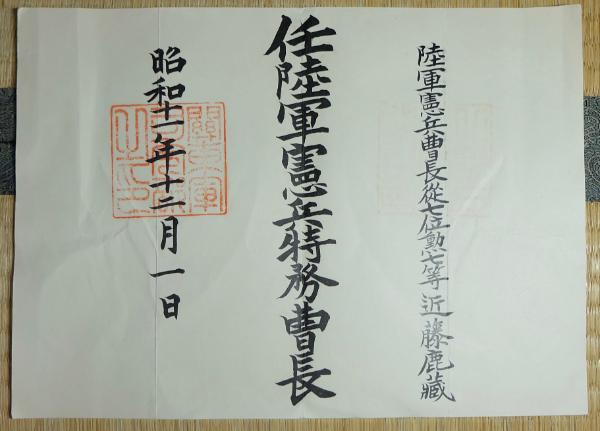 陸軍憲兵曹長従七位勲七等近藤鹿蔵
任陸軍憲兵特務曹長
昭和十一年十二月一日